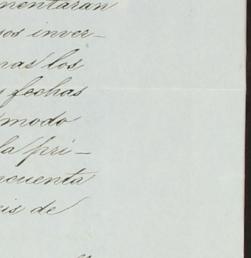 mentaran
sos inver-
nas los
y fechas
modo
la pri-
ncuenta
eis de